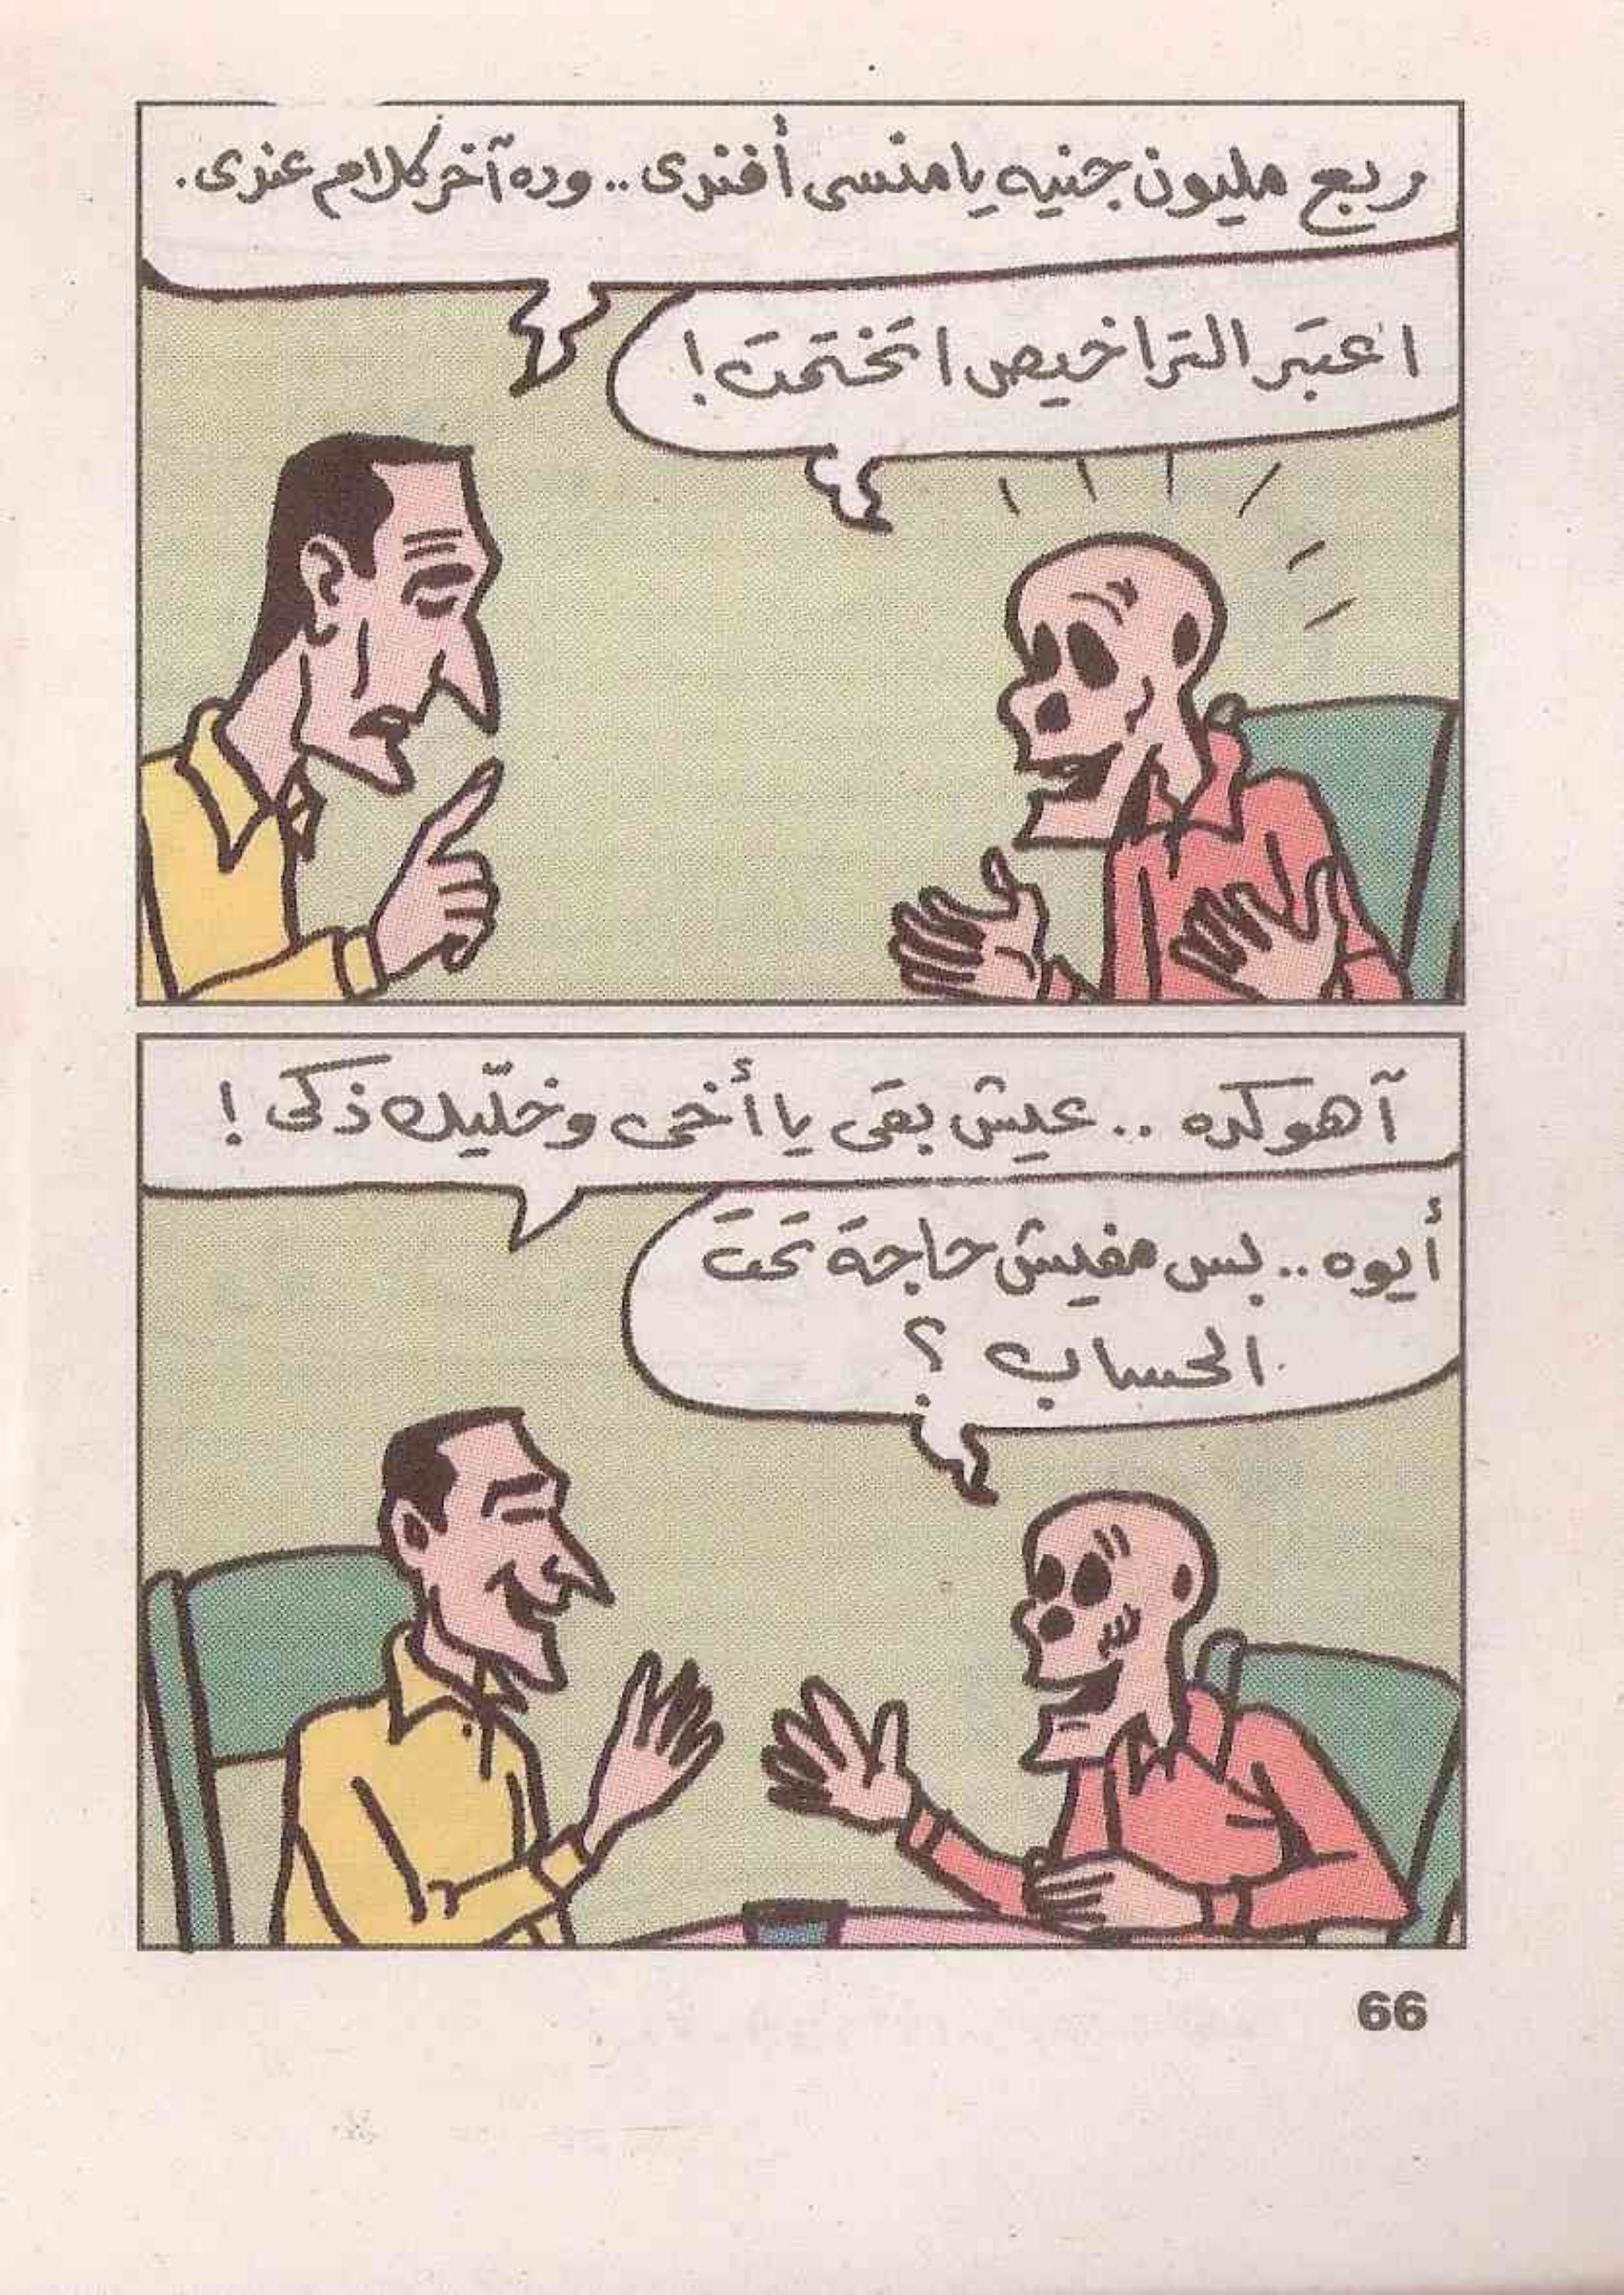 ربع مليون جنيه يا منسى أفندى.. وده آخر كلام عندى.
اعتبر التراخيص اتختمت!
آهو كده.. عيش بقى يا أخى وخليك ذكى!
أيوه.. بس مفيش حاجة تحت
الحساب؟
66